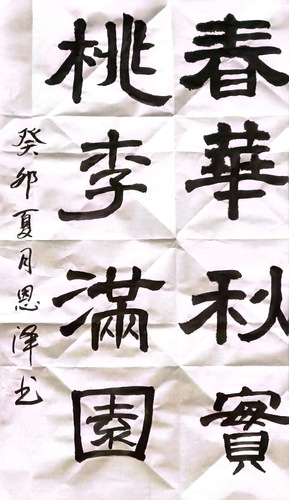 春華秋實
桃李滿園
癸卯夏月恩澤书